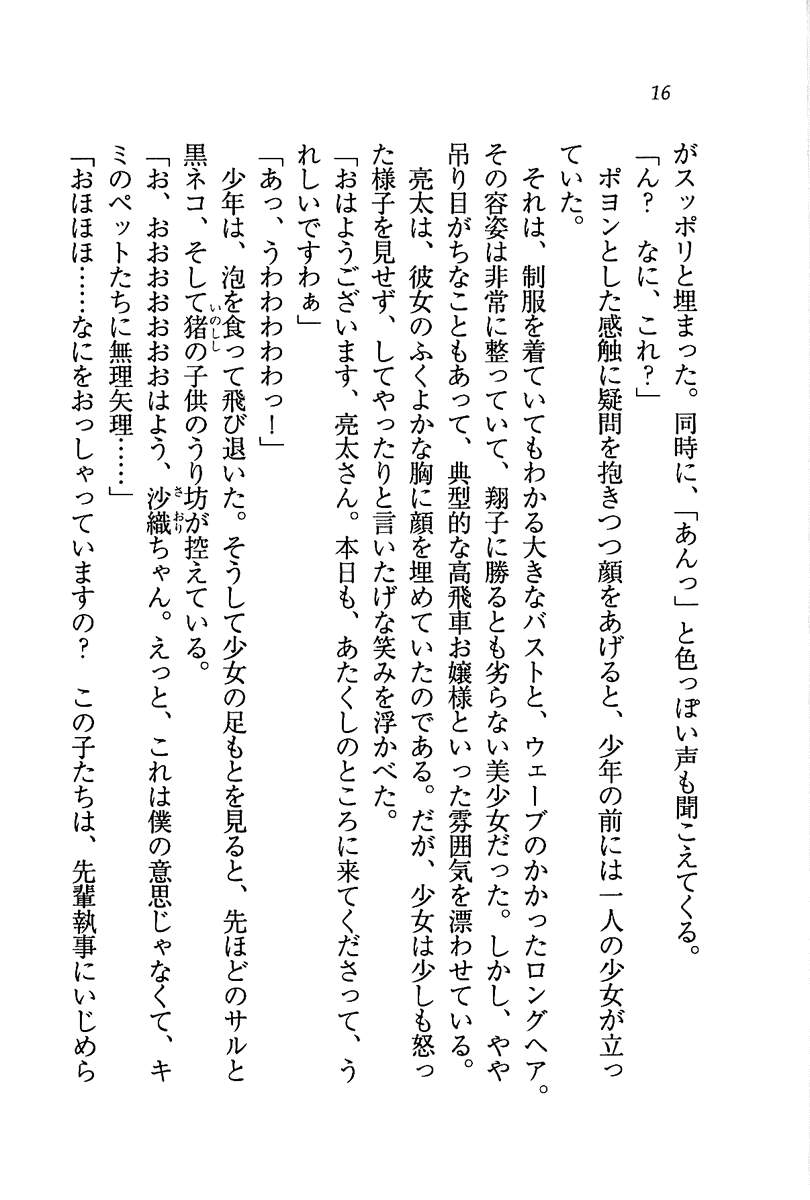 16
がスッポリと埋まった。同時に、「あんっ」と色っぽい声も聞こえてくる。
「ん？　なに、これ？」
ポヨンとした感触に疑問を抱きつつ顔をあげると、少年の前には一人の少女が立っ
ていた。
それは、制服を着ていてもわかる大きなバストと、ウェーブのかかったロングヘア。
その容姿は非常に整っていて、翔子に勝るとも劣らない美少女だった。しかし、やや
吊り目がちなこともあって、典型的な高飛車お嬢様といった雰囲気を漂わせている。
亮太は、彼女のふくよかな胸に顔を埋めていたのである。だが、少女は少しも怒っ
た様子を見せず、してやったりと言いたげな笑みを浮かべた。
「おはようございます、亮太さん。本日も、あたくしのところに来てくださって、う
れしいですわぁ」
「あっ、うわわわわわっ！」
少年は、泡を食って飛び退いた。そうして少女の足もとを見ると、先ほどのサルと
黒ネコ、そして猪いのししの子供のうり坊が控えている。
「お、おおおおおおおはよう、沙織さおりちゃん。えっと、これは僕の意思じゃなくて、キ
ミのペットたちに無理矢理……」
「おほほほ……なにをおっしゃっていますの？　この子たちは、先輩執事にいじめら